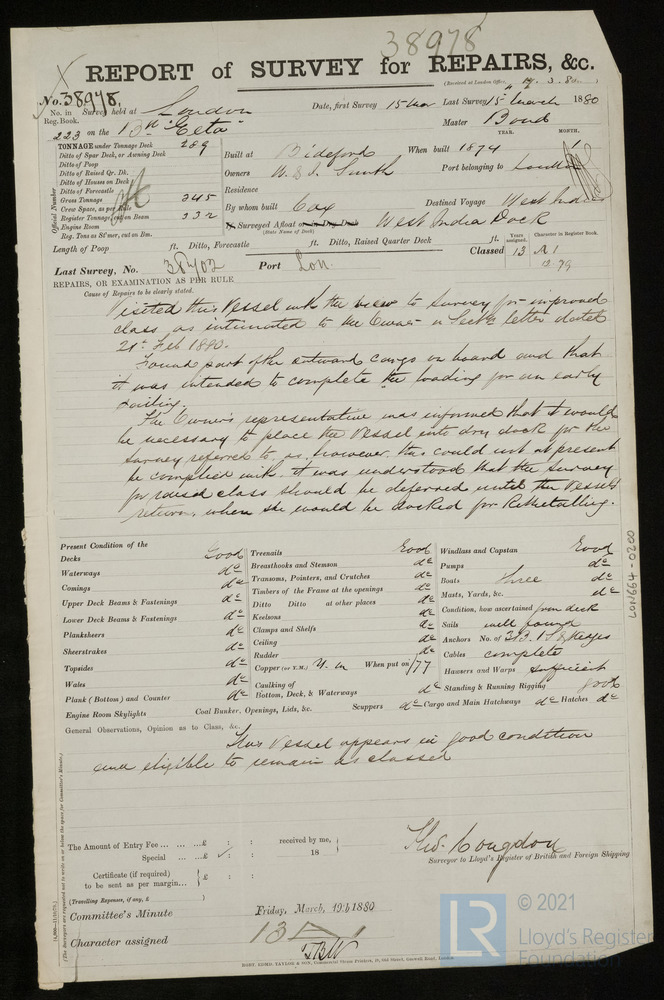 38978
REPORT of SURVEY for REPAIRS, &c.
(Received at London Office, 17.3.80)
No. 38978,
No. in Survey held at London Date, first Survey 15 Mar Last Survey 15 March 1880
Reg. Book.
223 on the Bk "Zeta" Master Bond
TONNAGE under Tonnage Deck 289
Ditto of Spar Deck, or Awning Deck
Ditto of Poop
Ditto of Raised Qr. Dk.
Ditto of Houses on Deck
Ditto of Forecastle
Gross Tonnage 345
Crew Space, as per Rule
Register Tonnage, cut on Beam 332
Engine Room
Reg. Tons as St'mer, cut on Bm.
Official Number
Built at Bideford When built 1874
YEAR. MONTH.
Owners W. & J. Smith Port belonging to London
Residence
By whom built Cox Destined Voyage West Indies
If Surveyed Afloat or in Dry Dock West India Dock
(State Name of Dock)
Length of Poop ft. Ditto, Forecastle ft. Ditto, Raised Quarter Deck ft.
Years assigned. Character in Register Book.
Classed 13 A 1
12.79
Last Survey, No. 38402 Port Lon.
REPAIRS, OR EXAMINATION AS PER RULE
Cause of Repairs to be clearly stated.
Visited this Vessel with the view to Survey for improved
class, as intimated to the Owner in Sect's letter dated
21st Feb 1880.
Found part of the outward cargo on board and that
it was intended to complete the loading for an early
sailing.
The Owner's representative was informed that it would
be necessary to place the Vessel into dry dock for the
Survey referred to, as, however, this could not at present
be complied with it was understood that the survey
for raised class should be deferred until the Vessel's
return, when she would be docked for Remetalling.
LON664-0200
Present Condition of the
Decks Good
Waterways do
Comings do
Upper Deck Beams & Fastenings do
Lower Deck Beams & Fastenings do
Planksheers do
Sheerstrakes do
Topsides do
Wales do
Plank (Bottom) and Counter do
Engine Room Skylights
Treenails Good
Breasthooks and Stemson do
Transoms, Pointers, and Crutches do
Timbers of the Frame at the openings do
Ditto Ditto at other places do
Keelsons do
Clamps and Shelfs do
Ceiling do
Rudder do
Copper (or Y.M.) Y. m When put on /77
Caulking of Bottom, Deck, & Waterways do
Coal Bunker, Openings, Lids, &c. Scuppers do
Windlass and Capstan Good
Pumps do
Boats three do
Masts, Yards, &c. do
Condition, how ascertained from deck
Sails well found
Anchors No. of 3B. 1S & Kedges
Cables complete
Hawsers and Warps sufficient
Standing & Running Rigging good
Cargo and Main Hatchways do Hatches do
General Observations, Opinion as to Class, &c.
This Vessel appears in good condition
and eligible to remain as classed
The Amount of Entry Fee ... ... ...£ : : received by me,
Special ... ...£ : : 18
Certificate (if required) to be sent as per margin... £ : :
(Travelling Expenses, if any, £ )
Thos. Congdon
Surveyor to Lloyd's Register of British and Foreign Shipping
Committee's Minute Friday, March, 19th 1880
Character assigned 13 A 1
(The Surveyors are requested not to write on or below the space for Committee's Minute.)
© 2021
Lloyd's Register
Foundation
LR